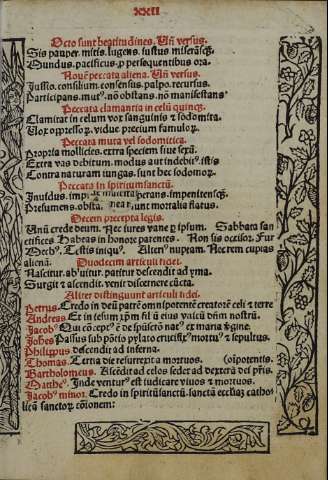 xxii
Octo sunt beatitudines. Un̄ versus.
Sis pauper. mitis. lugens. iustus miserās.
Mundus. pacificus. p persequentibus ora.
Noue peccata aliena. Un̄ versus.
Jussio. consilium. consensus. palpo. recursus.
Participans. mutꝰ. nō obstans. nō manifestans
Peccata clamantia in celū quincꝫ.
Clamitat in celum vox sanguinis ⁊ sodomita.
Vox oppressor. vidue precium famulor.
Peccata muta vel sodomitica.
Propria mollicies. extra speciem siue sexū.
Extra vas debitum. modus aut indebitꝰ. istis
Contra naturam iungas. sunt hec sodomor.
Peccata in spiritumsanctū.
Inuidus. desperans. impenitenscꝫ.
Presumens. obsta. mortalia flatus.
Decem precepta legis.
Unū crede deum. Nec iures vane ꝑ ipsum. Sabbata san
ctifices Habeas in honore parentes. Non sis occisor. Fur
Mechꝰ. Testis iniquꝰ. Alteriꝰ nuptam. Nec rem cupias
alienā. Duodecim articuli fidei.
Nascitur. abluitur. patitur descendit ad yma.
Surgit ⁊ ascendit. venit discernere cūcta.
Aliter distinguunt articuli fidei.
Petrus. Credo in deū patrē omnipotentē creatorē celi ⁊ terre
Andreas Et in iesum xp̄m fil ū eius vnicū dn̄m nostrū.
Jacobꝰ Qui cō ceptꝰ ē de spūsctō natꝰ ex maria v̄gine.
Johēs Passus sub pōtio pylato crucifixꝰ mortuꝰ ⁊ sepultus.
Philippus descendit ad inferna.
Thomas. Tertia die resurrexit a mortuos. (oīpotentis.
Bartholomeus. Ascēdit ad celos sedet ad dexterā dei pr̄is.
Mattheꝰ. Inde venturꝰ est iudicare viuos ⁊ mortuos.
Jacobꝰ minor. Credo in spiritūsanctū. sanctā eccliaꝫ catho
licā sanctor cōionem: